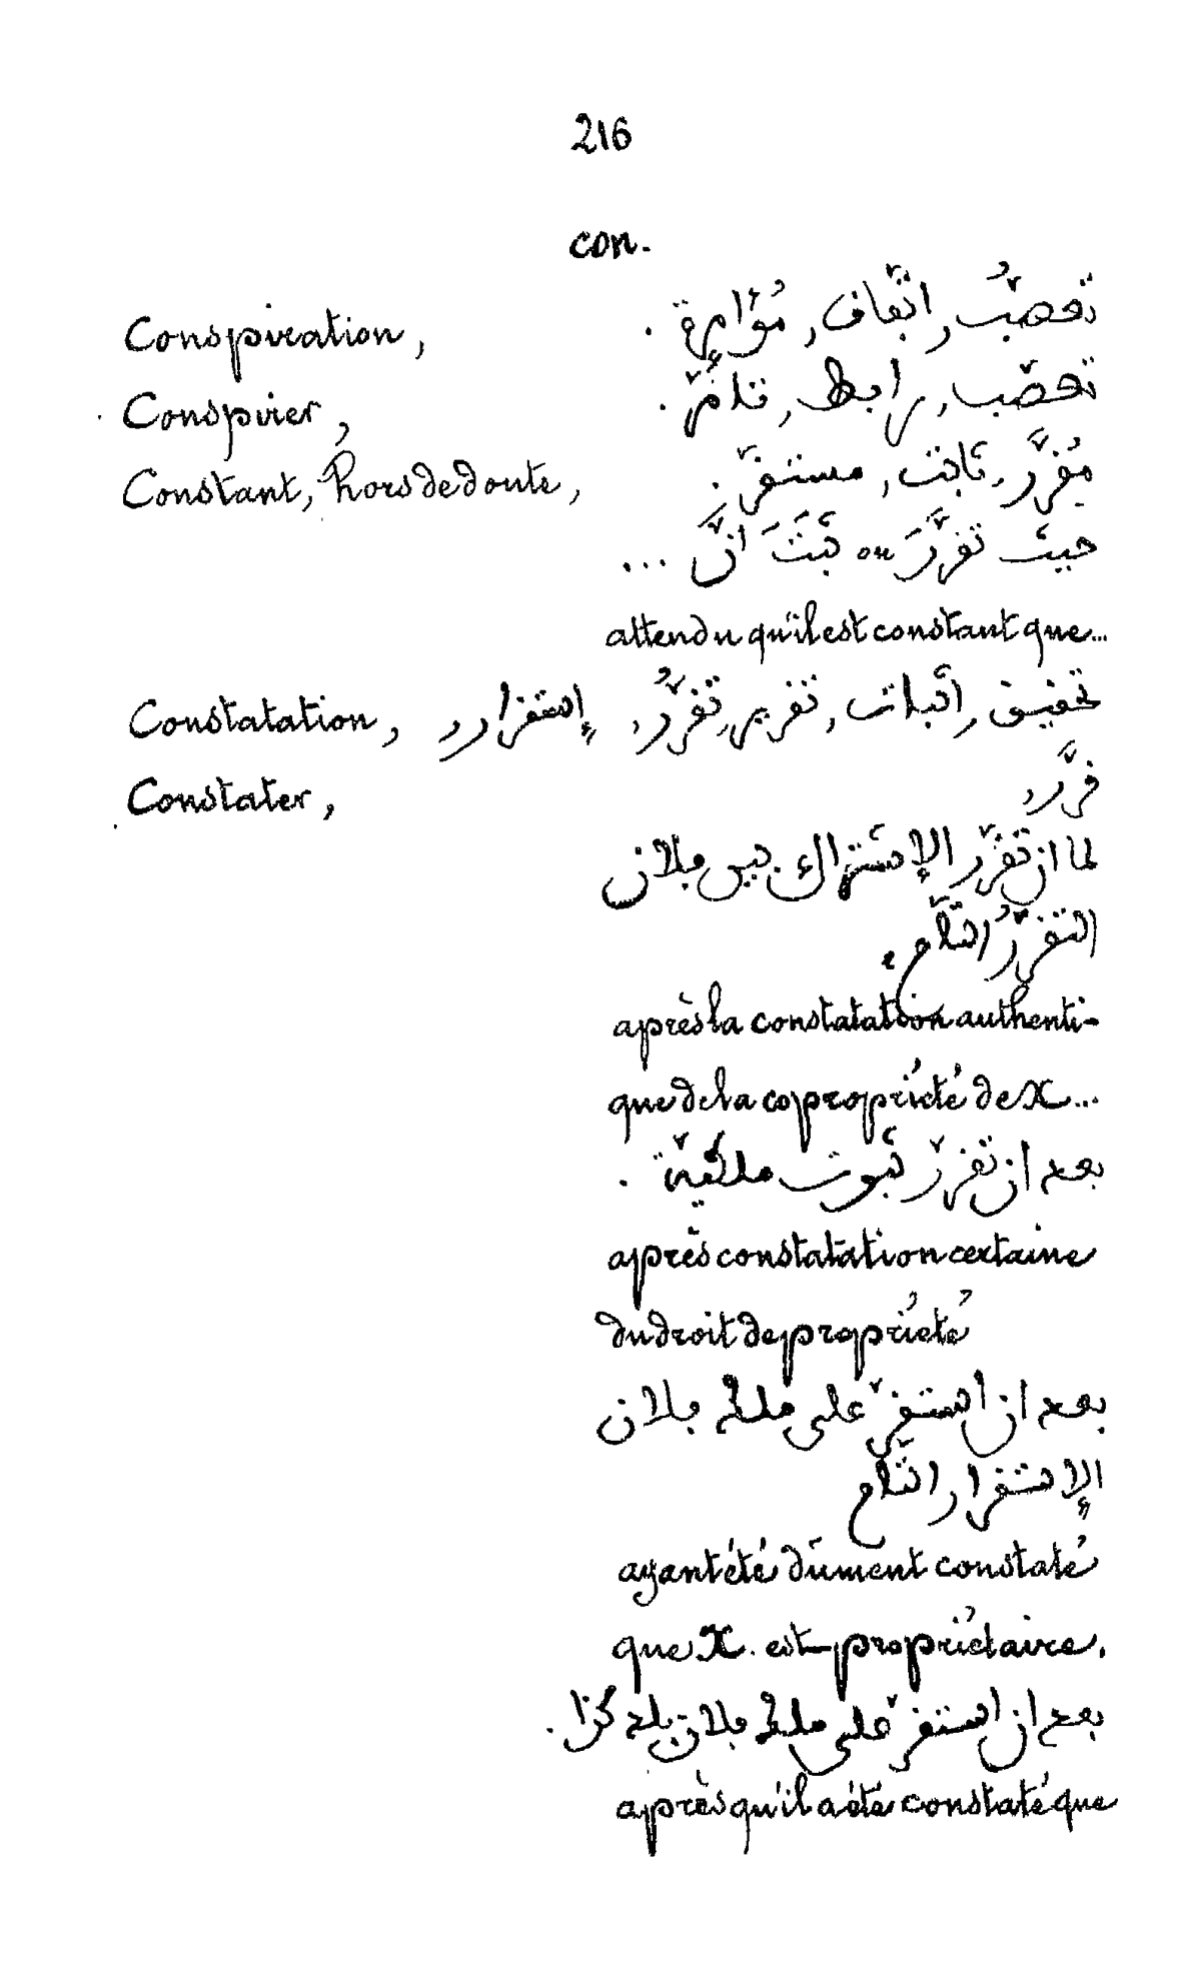 216
con.
Conspiration, تعصّبُ, اتّفاق, مُؤَامرة.
Conspirer, تعصّب, رابط, تـامّر.
Constant, hors de doute, مُقرَّر, ثابت, مستقرّ.
حيث تقرَّرَ ou ثَبَتَ انَّ ...
attendu qu'il est constant que...
Constatation, تحقيق, اثبات, تقرير, تقرُّر, إستقرار,
Constater, قرَّر,
لما ان تقرّر الإشتراك بين فلان
التقرّرُ التّام.
après la constatation authenti-
que de la copropriété de X...
بعد ان تقرّر ثبوت ملكيّة.
après constatation certaine
du droit de propriété
بعد ان استقرّ على ملك فلان
الإستقرار التّام
ayant été dûment constaté
que X. est propriétaire.
بعد ان استقرّ على ملك فلان بلد كذا.
après qu'il a été constaté que